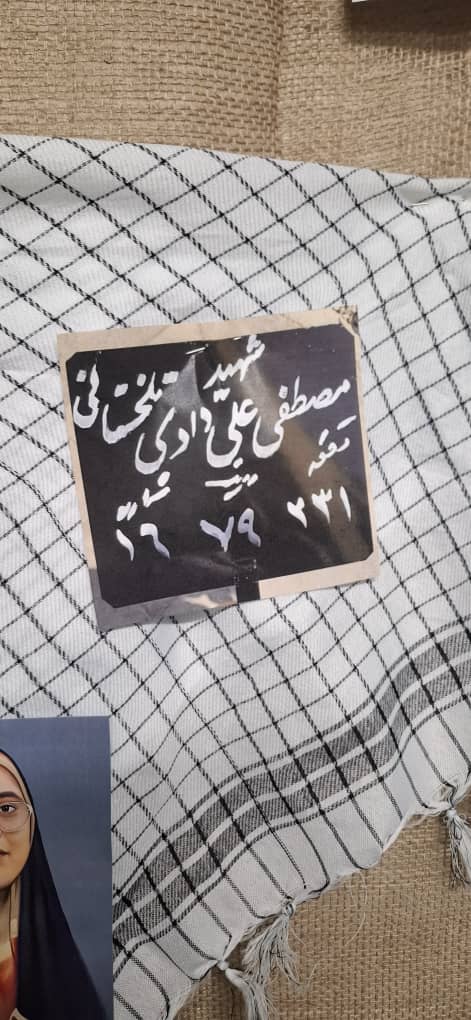 شهید
مصطفی علی دادی تلخستانی
قطعه ردیف شماره
۲۳۱ ۷۹ ۱۶